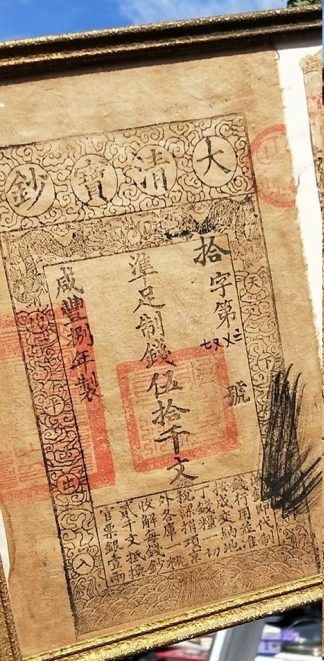 大清寶鈔
拾字第號
準足制錢伍拾千文
咸豐捌年製
天
平出入
即代制
錢行用並准
按成交納地
丁錢糧一切
稅課捐項京
外各庫一概
收解每錢鈔
貳千文抵換
官票銀壹兩